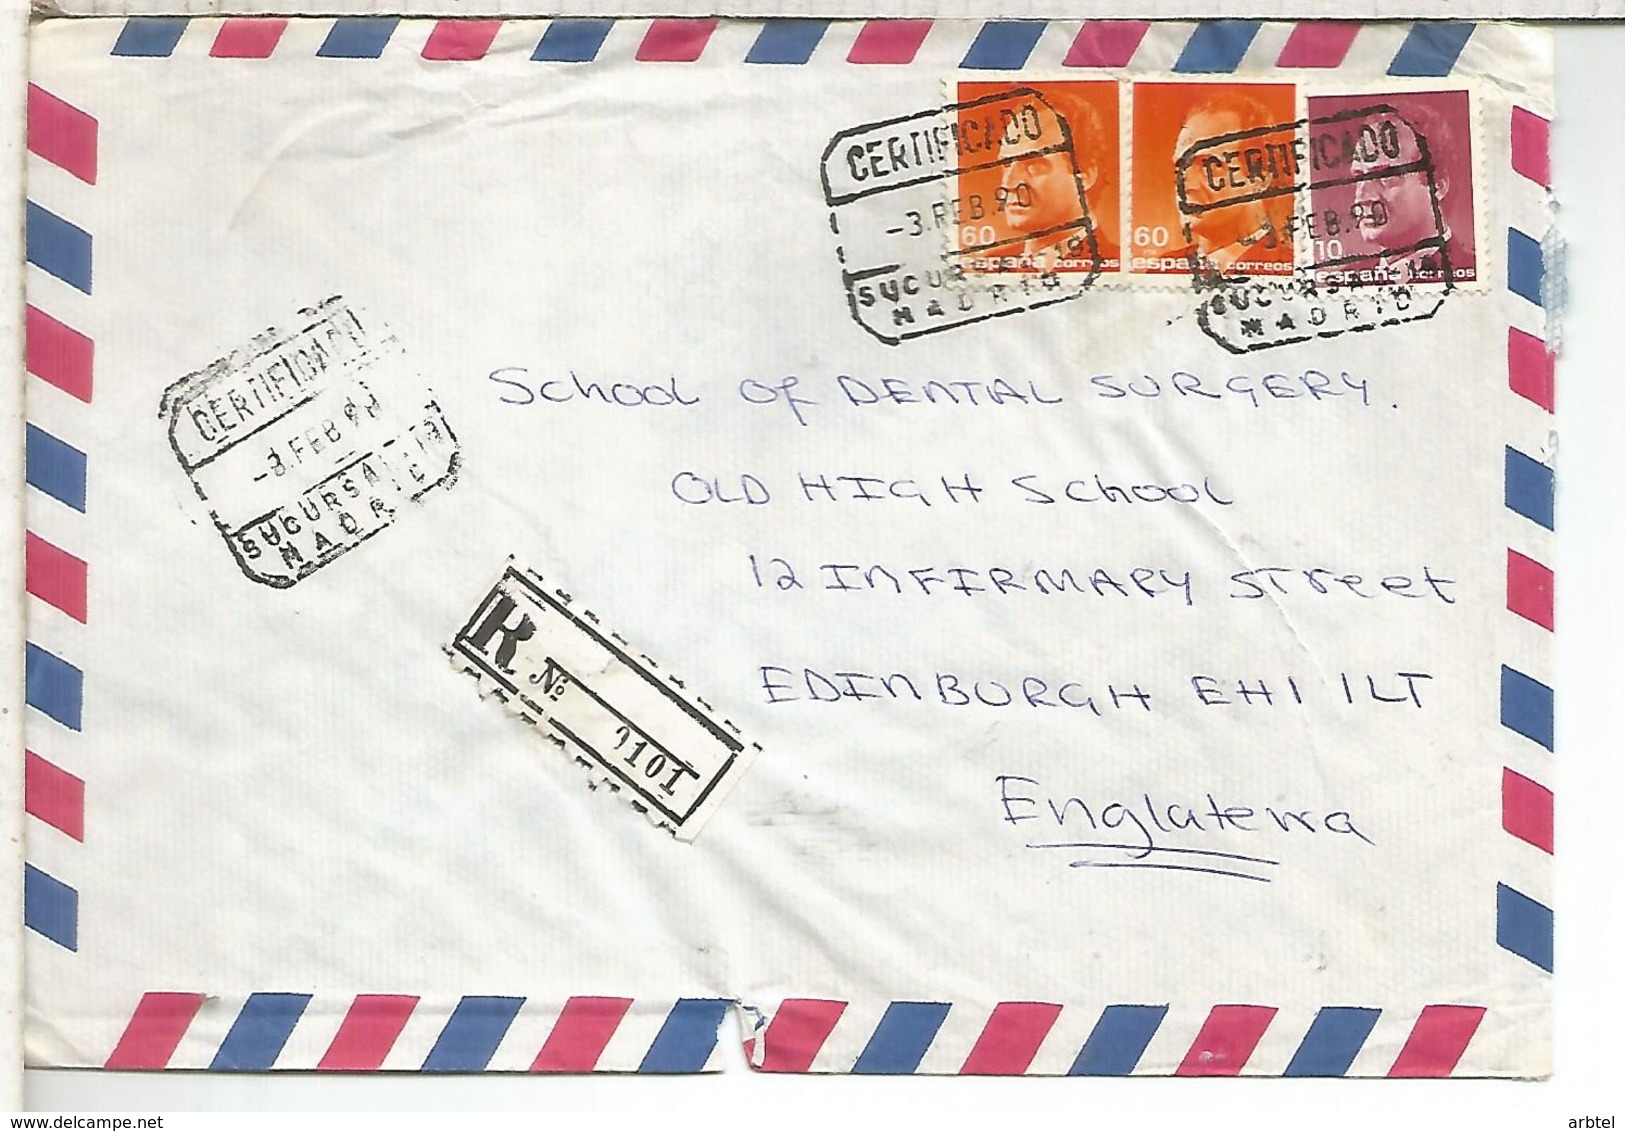 CERTIFICADO
-3.FEB.90
SUCURSAL 19
MADRID
60
españa correos
60
españa correos
CERTIFICADO
-3.FEB.90
SUCURSAL 19
MADRID
10
españa correos
CERTIFICADO
-3.FEB.90
SUCURSAL 19
MADRID
School of DENTAL SURGERY.
OLD HIGH School
12 INFIRMARY Street
EDINBURGH EH1 1LT
Englaterra
R Nº 0101
arbtel